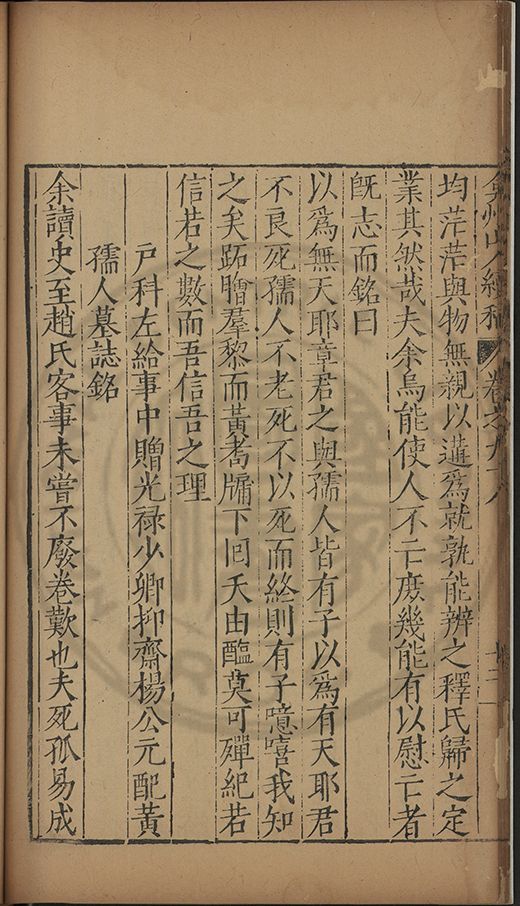 弇州山人續稿 卷之九十八
均茫茫與物無親以遘爲就孰能辨之釋氏歸之定
業其然哉夫余烏能使人不亡庶幾能有以慰亡者
既志而銘曰
以爲無天耶章君之與孺人皆有子以爲有天耶君
不良死孺人不老死不以死而終則有子噫嘻我知
之矣跖膾羣黎而黃耉牖下回夭由醢莫可殫紀若
信若之數而吾信吾之理
戶科左給事中贈光祿少卿抑齋楊公元配黃
孺人墓誌銘
余讀史至趙氏客事未嘗不廢卷歎也夫死孤易成